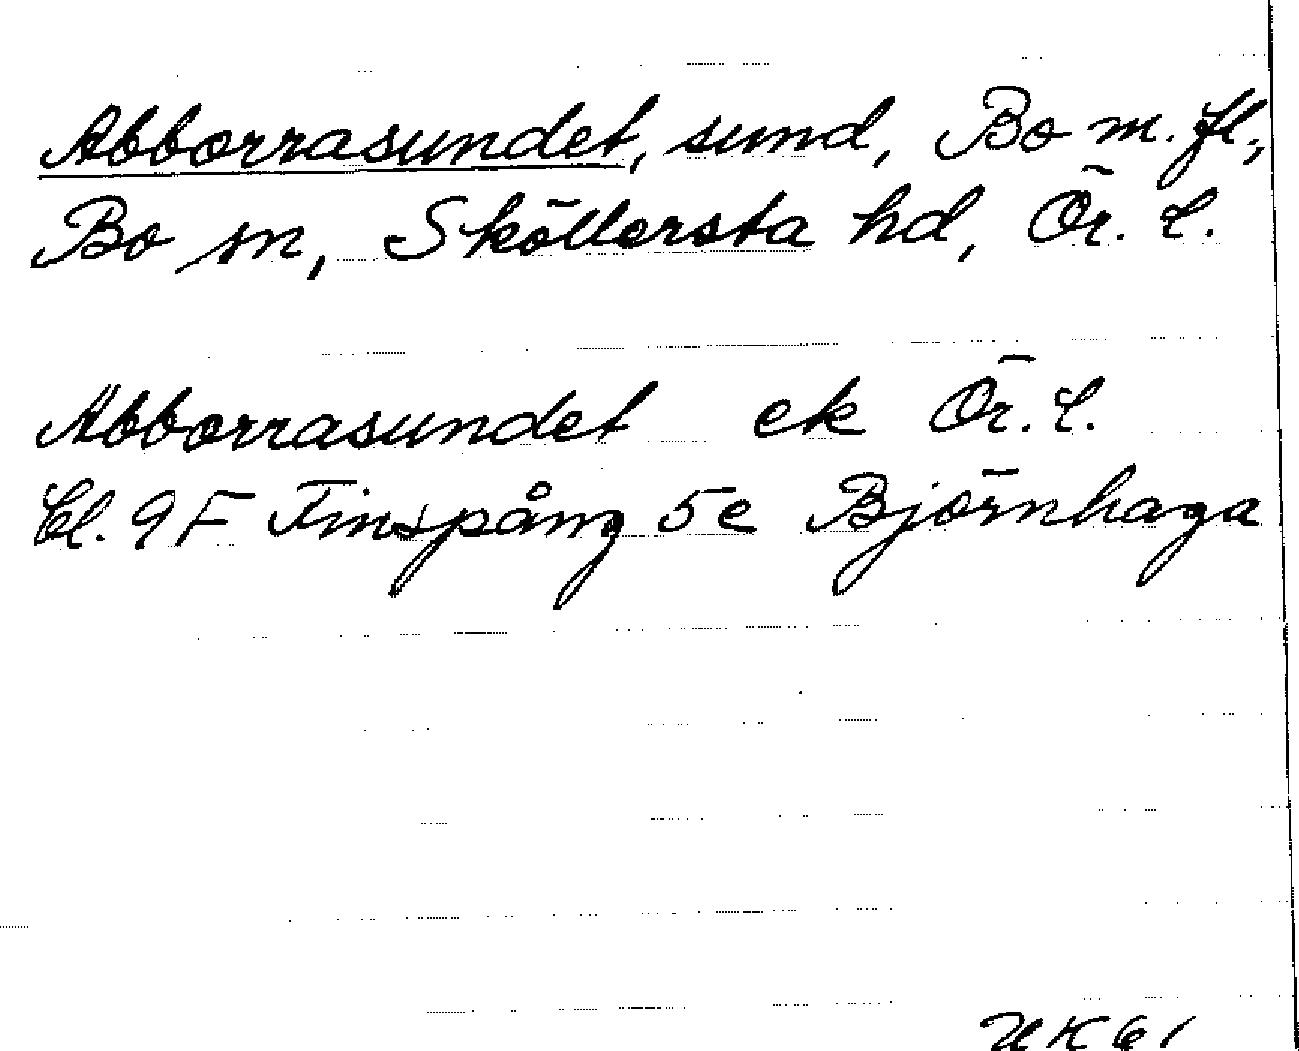 Abborrasundet, sund, Bo m. fl.,
Bo sn, Sköllersta hd, Ör. l.
Abborrasundet ek Ör. l.
bl. 9F Finspång 5e Björnhaga
UK 61